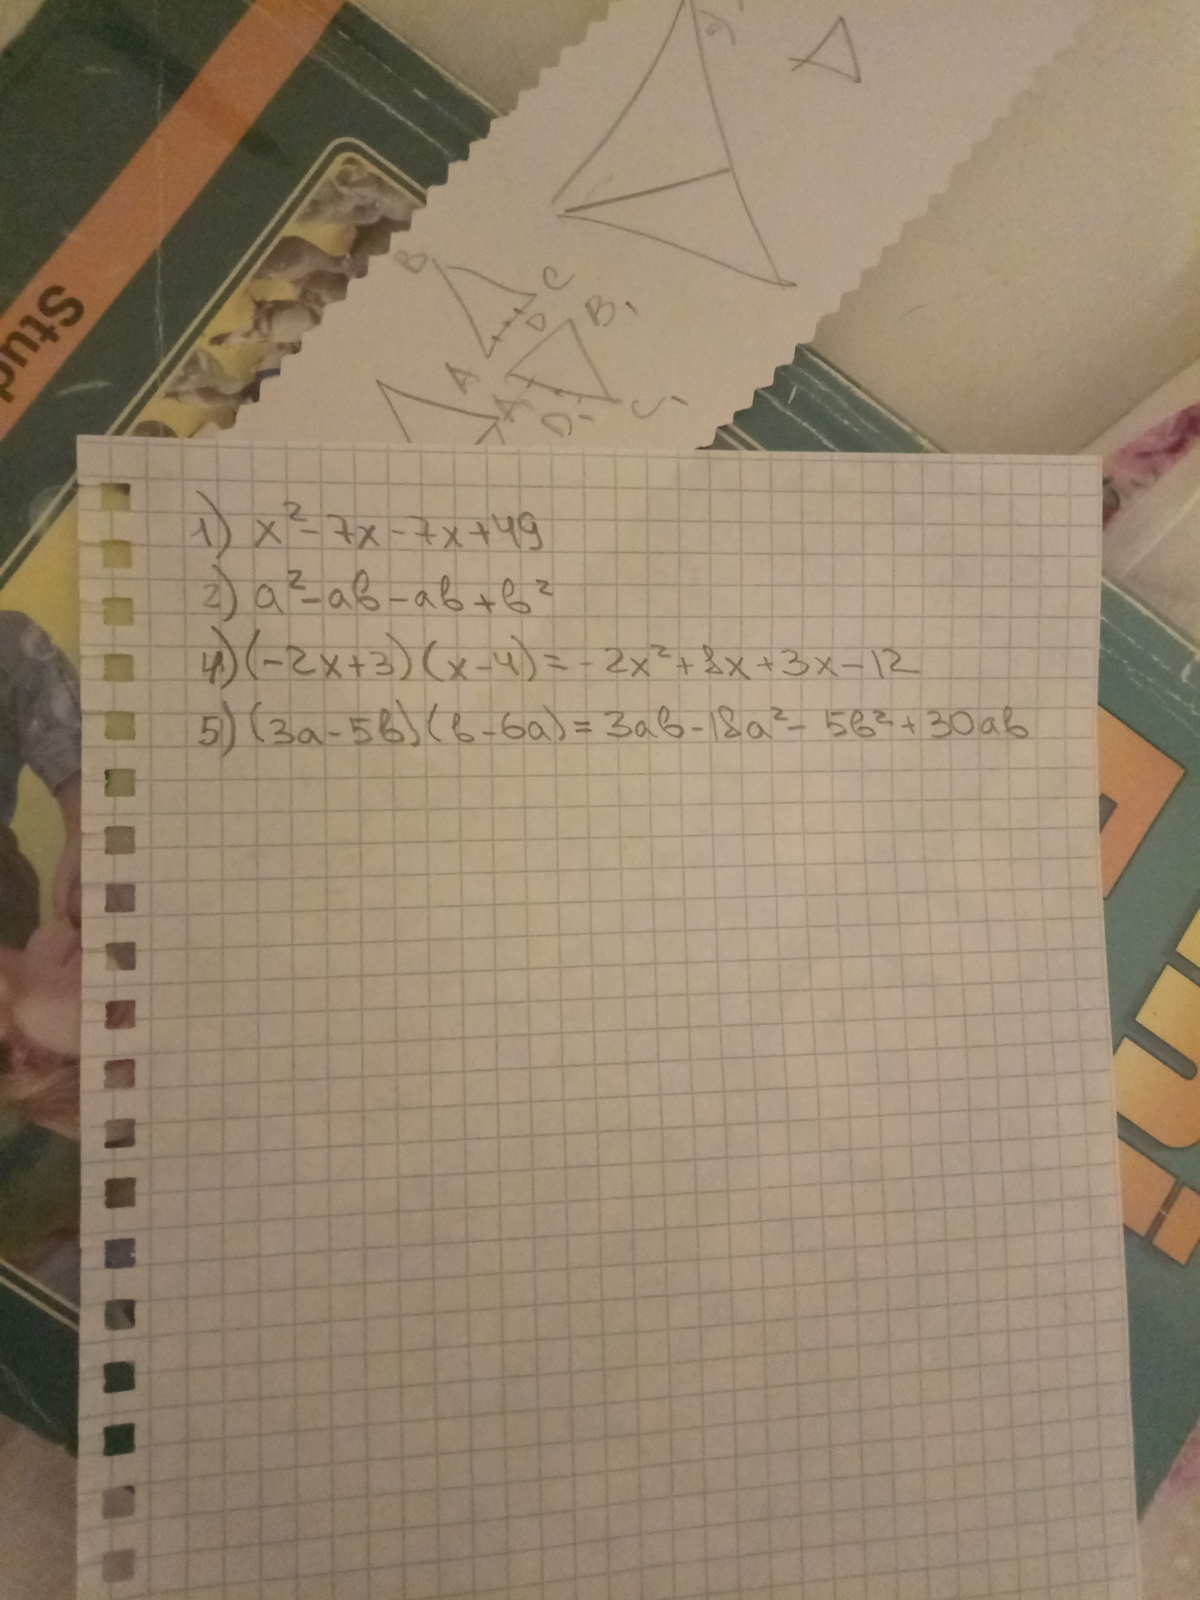 Stud
B
C
D
B₁
A
A
D₁
C₁
1) x²-7x-7x+49
2) a²-ab-ab+b²
4) (-2x+3)(x-4)=-2x²+8x+3x-12
5) (3a-5b)(b-6a)=3ab-18a²-5b²+30ab